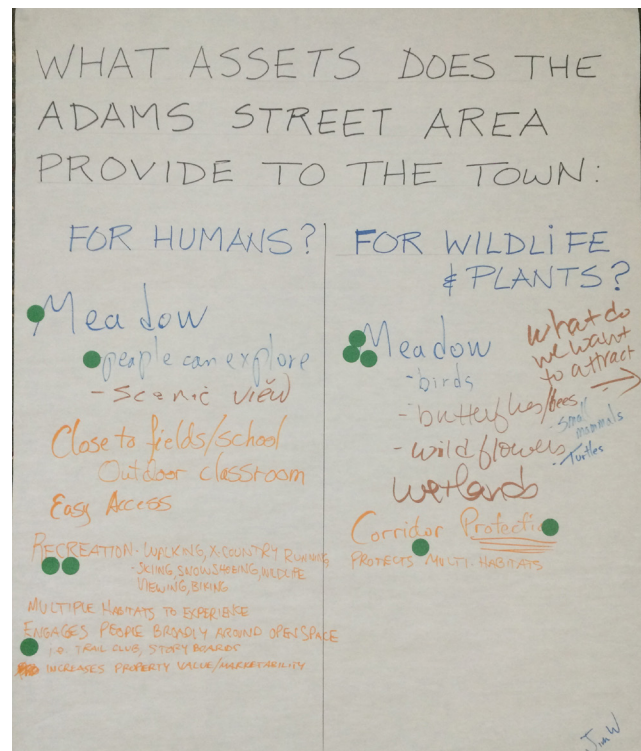 WHAT ASSETS DOES THE
ADAMS STREET AREA
PROVIDE TO THE TOWN:
FOR HUMANS?
Meadow
people can explore
- Scenic view
Close to fields/school
Outdoor classroom
Easy Access
RECREATION - WALKING, X-COUNTRY RUNNING,
- SKIING, SNOWSHOEING, WILDLIFE
VIEWING, BIKING
MULTIPLE HABITATS TO EXPERIENCE
ENGAGES PEOPLE BROADLY AROUND OPEN SPACE
i.e. TRAIL CLUB, STORY BOARDS
INCREASES PROPERTY VALUE/MARKETABILITY
FOR WILDLIFE
& PLANTS?
Meadow
- birds
- butterflies/bees
- wild flowers
wetlands
Corridor Protection
PROTECTS MULTI-HABITATS
what do
we want
to attract
- Small
mammals
- Turtles
Jim W